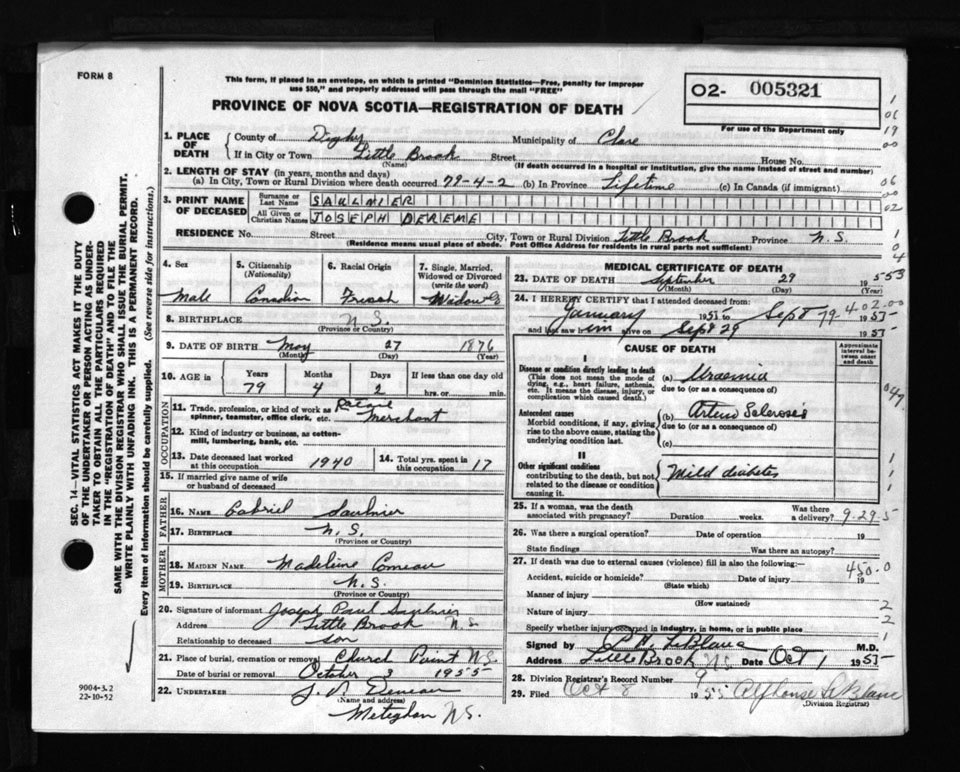 FORM 8
This form, if placed in an envelope, on which is printed "Dominion Statistics—Free, penalty for improper
use $50," and properly addressed will pass through the mail "FREE"
PROVINCE OF NOVA SCOTIA—REGISTRATION OF DEATH
02- 005321
For use of the Department only
1. PLACE OF DEATH
County of Digby Municipality of Clare
If in City or Town Little Brook Street House No.
(Name) (If death occurred in a hospital or institution, give the name instead of street and number)
2. LENGTH OF STAY (in years, months and days)
(a) In City, Town or Rural Division where death occurred 79-4-2 (b) In Province Lifetime (c) In Canada (if immigrant)
3. PRINT NAME OF DECEASED
Surname or Last Name SAULNIER
All Given or Christian Names JOSEPH DEREME
RESIDENCE No. Street City, Town or Rural Division Little Brook Province N.S.
(Residence means usual place of abode. Post Office Address for residents in rural parts not sufficient)
4. Sex
Male
5. Citizenship
(Nationality)
Canadian
6. Racial Origin
French
7. Single, Married, Widowed or Divorced
(write the word)
8. BIRTHPLACE N.S.
(Province or Country)
9. DATE OF BIRTH May 27 1876
(Month) (Day) (Year)
10. AGE in Years Months Days If less than one day old
79 4 2 hrs. or min.
OCCUPATION
11. Trade, profession, or kind of work as spinner, teamster, office clerk, etc. Retail Merchant
12. Kind of industry or business, as cotton-mill, lumbering, bank, etc.
13. Date deceased last worked at this occupation 1940
14. Total yrs. spent in this occupation 17
15. If married give name of wife or husband of deceased
FATHER
16. NAME Gabriel Saulnier
17. BIRTHPLACE N.S.
(Province or Country)
MOTHER
18. MAIDEN NAME Madeline Comeau
19. BIRTHPLACE N.S.
(Province or Country)
20. Signature of informant Joseph Paul Saulnier
Address Little Brook N.S.
Relationship to deceased son
21. Place of burial, cremation or removal Church Point N.S.
Date of burial or removal October 3 1955
22. UNDERTAKER
(Name and address)
Meteghan N.S.
MEDICAL CERTIFICATE OF DEATH
23. DATE OF DEATH September 29 1955
(Month) (Day) (Year)
24. I HEREBY CERTIFY that I attended deceased from
January 1951 to Sept 29 1955
and last saw him alive on Sept 29 1955
CAUSE OF DEATH
Approximate interval between onset and death
I
Disease or condition directly leading to death
(This does not mean the mode of dying, e.g., heart failure, asthenia, etc. It means the disease, injury, or complication which caused death.)
(a) Uraemia
due to (or as a consequence of)
Antecedent causes
Morbid conditions, if any, giving rise to the above cause, stating the underlying condition last.
(b) Arterio Sclerosis
due to (or as a consequence of)
(c)
II
Other significant conditions
contributing to the death, but not related to the disease or condition causing it.
Mild diabetes
25. If a woman, was the death associated with pregnancy? Duration weeks. Was there a delivery?
9-29-5
26. Was there a surgical operation? Date of operation 19
State findings Was there an autopsy?
27. If death was due to external causes (violence) fill in also the following:—
450.0
Accident, suicide or homicide? Date of injury 19
(State which)
Manner of injury
(How sustained)
Nature of injury
Specify whether injury occurred in industry, in home, or in public place
Signed by LeBlanc M.D.
Address Little Brook N.S. Date Oct 1 1955
28. Division Registrar's Record Number 9
29. Filed Oct 8 1955 Alphonse LeBlanc
(Division Registrar)
SEC. 14—VITAL STATISTICS ACT MAKES IT THE DUTY
OF THE UNDERTAKER OR PERSON ACTING AS UNDER-
TAKER TO OBTAIN ALL THE PARTICULARS REQUIRED
IN THE "REGISTRATION OF DEATH" AND TO FILE THE
SAME WITH THE DIVISION REGISTRAR WHO SHALL ISSUE THE BURIAL PERMIT.
WRITE PLAINLY WITH UNFADING INK. THIS IS A PERMANENT RECORD.
Every item of information should be carefully supplied. (See reverse side for instructions.)
9004-3.2
22-10-52